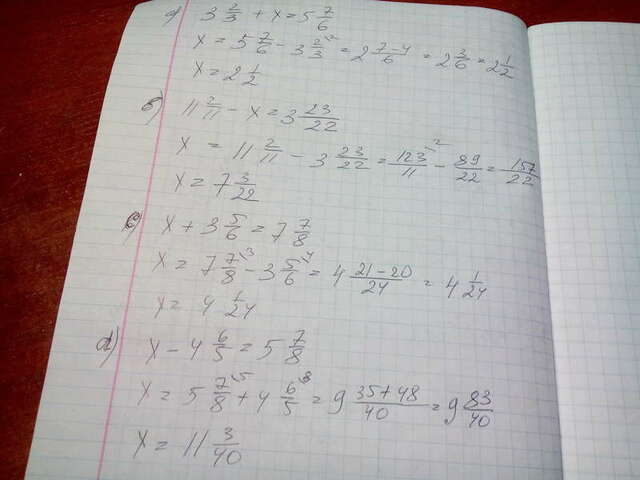 а) 3 2/3 + x = 5 7/6
x = 5 7/6 - 3 2/3 ^2 = 2 (7-4)/6 = 2 3/6 = 2 1/2
x = 2 1/2
б) 11 2/11 - x = 3 23/22
x = 11 2/11 - 3 23/22 = 123/11 ^2 - 89/22 = 157/22
x = 7 3/22
в) x + 3 5/6 = 7 7/8
x = 7 7/8 ^3 - 3 5/6 ^4 = 4 (21-20)/24 = 4 1/24
x = 4 1/24
d) x - 4 6/5 = 5 7/8
x = 5 7/8 ^5 + 4 6/5 ^8 = 9 (35+48)/40 = 9 83/40
x = 11 3/40